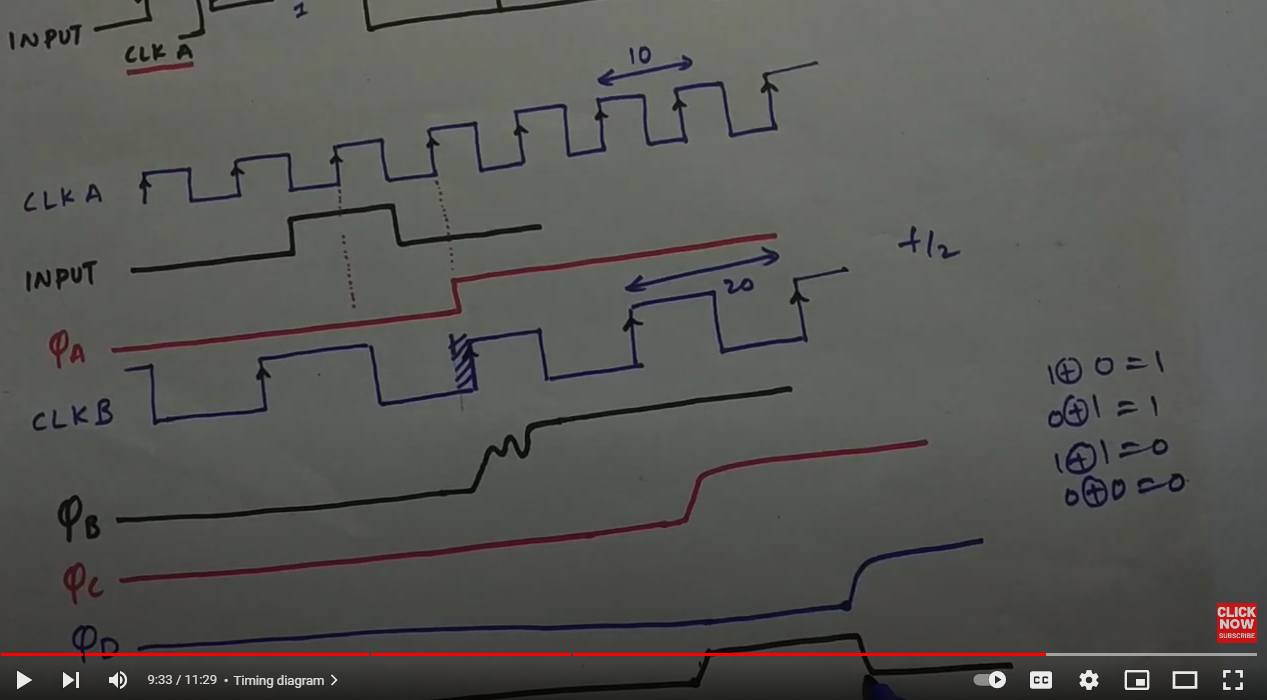 INPUT
CLK A
1
10
CLK A
INPUT
f/2
20
φA
CLK B
1⊕0=1
0⊕1=1
1⊕1=0
0⊕0=0
φB
φC
φD
CLICK
NOW
SUBSCRIBE
9:33 / 11:29 • Timing diagram >
CC